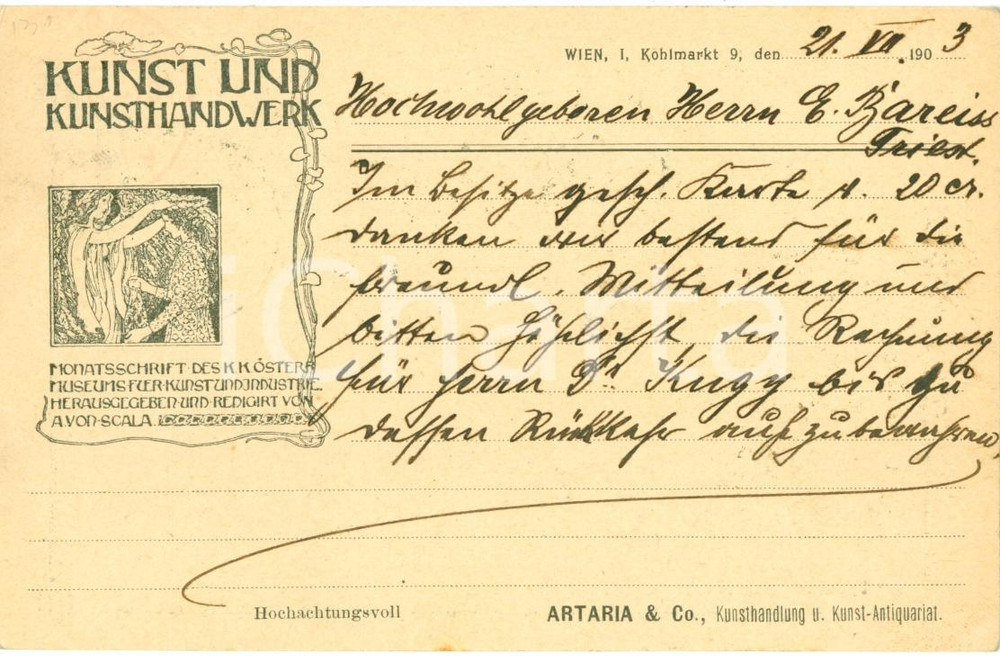 KUNST UND
KUNSTHANDWERK
MONATSSCHRIFT DES K K ÖSTERR
MUSEUMS FUER KUNST UND INDUSTRIE
HERAUSGEGEBEN UND REDIGIRT VON
A VON SCALA
WIEN, I, Kohlmarkt 9, den 21. VII. 1903
Hochwohlgeboren Herrn E. Bareiss
Triest.
Im Besitze gesch. Karte v. 20 cr.
danken wir bestens für die
freundl. Mitteilung und
bitten höflichst, die Rechnung
für Herrn Dr. Kugy bis zu
dessen Rückkehr aufzubewahren.
Hochachtungsvoll
ARTARIA & Co., Kunsthandlung u. Kunst-Antiquariat.
iCharta